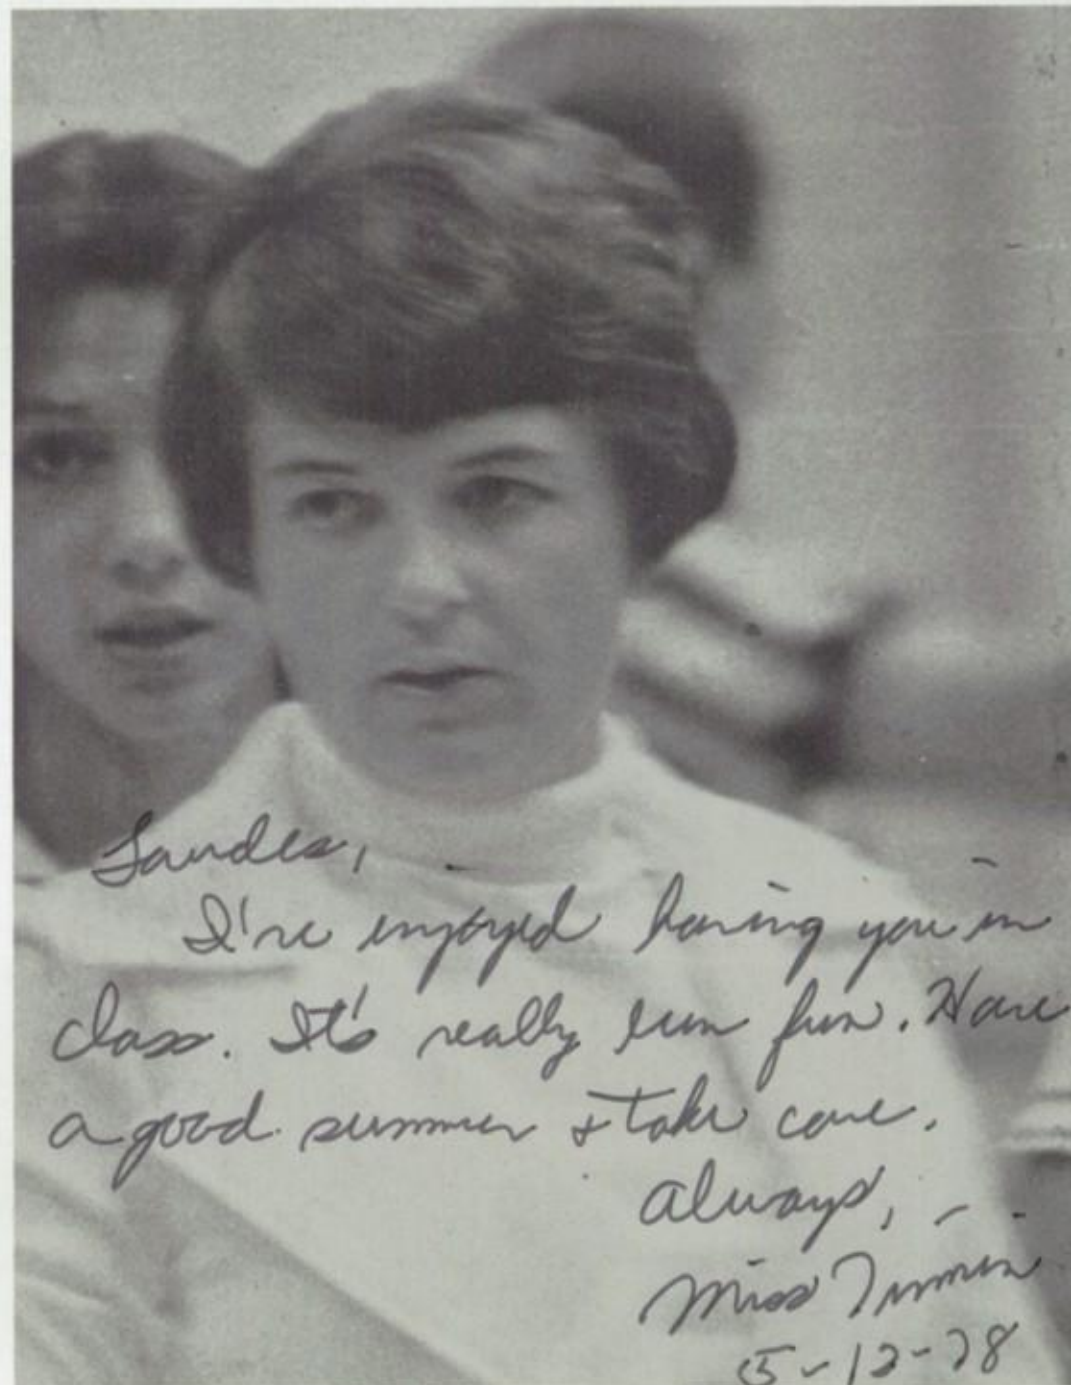 I've enjoyed having you in
class. It's really been fun. Have
a good summer & take care.
Always,
Miss
5-12-78